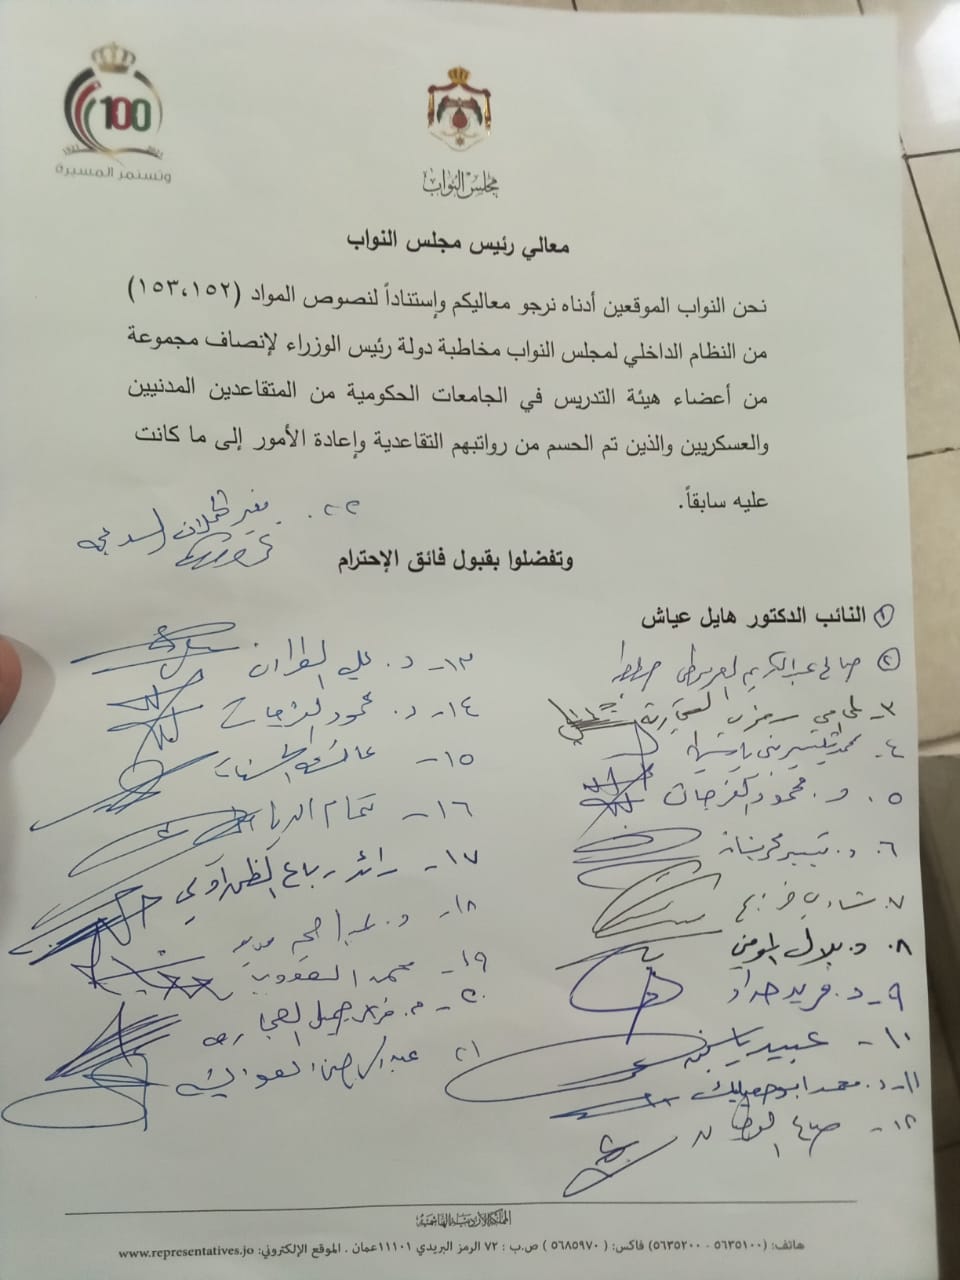 100
وتستمر المسيرة
مجلس النواب
معالي رئيس مجلس النواب
نحن النواب الموقعين أدناه نرجو معاليكم وإستناداً لنصوص المواد (١٥٣،١٥٢)
من النظام الداخلي لمجلس النواب مخاطبة دولة رئيس الوزراء لإنصاف مجموعة
من أعضاء هيئة التدريس في الجامعات الحكومية من المتقاعدين المدنيين
والعسكريين والذين تم الحسم من رواتبهم التقاعدية وإعادة الأمور إلى ما كانت
عليه سابقاً.
٢٢.
وتفضلوا بقبول فائق الإحترام
١ النائب الدكتور هايل عياش
٢ صالح عبدالكريم العرموطي
٣-
٤.
٥. د. محمود الفرجات
٦. د. تيسير كريشان
٧. شادي فريج
٨. د. بلال المومني
٩- د. فريد حداد
١٠- عبيد ياسين
١١- د. محمد ابوصعيليك
١٢-
١٣- د. علي الطراونة
١٤- د. محمود الفرجات
١٥- عائشة الحسنات
١٦- تمام الرياطي
١٧- رائد رباع الظهراوي
١٨- د.
١٩- محمد
٢٠- م.
٢١ عبدالرحمن العوايشة
المملكة الأردنية الهاشمية
هاتف: (٥٦٣٥١٠٠ - ٥٦٣٥٢٠٠) فاكس: (٥٦٨٥٩٧٠) ص.ب : ٧٢ الرمز البريدي ١١١٠١عمان . الموقع الإلكتروني: www.representatives.jo